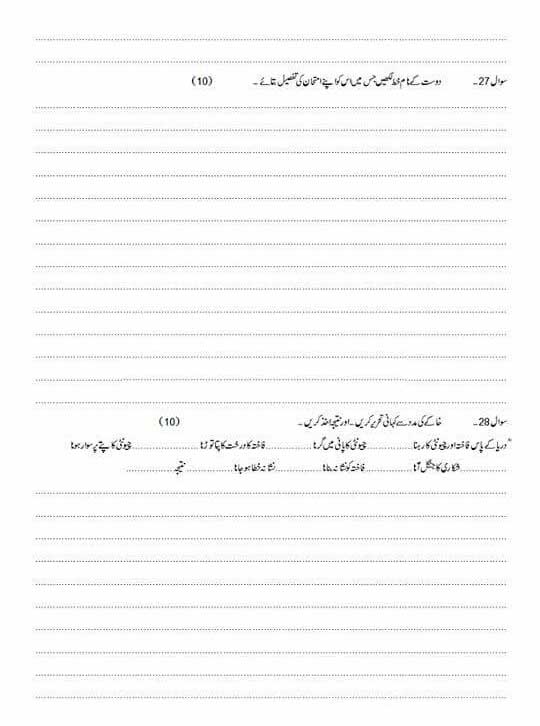 سوال 27۔ دوست کے نام خط لکھیں جس میں اس کو اپنے امتحان کی تفصیل بتائے ۔ (10)
سوال 28۔ خاکے کی مدد سے کہانی تحریر کریں۔ اور نتیجہ اخذ کریں ۔ (10)
"دریا کے پاس فاختہ اور چیونٹی کا رہنا ................ چیونٹی کا پانی میں گرنا ................ فاختہ کا درخت کا پتا توڑنا ................ چیونٹی کا پتے پر سوار ہونا
................ شکاری کا جنگل آنا ................ فاختہ کو نشانہ بنانا ................ نشانہ خطا ہو جانا ................ نتیجہ ................